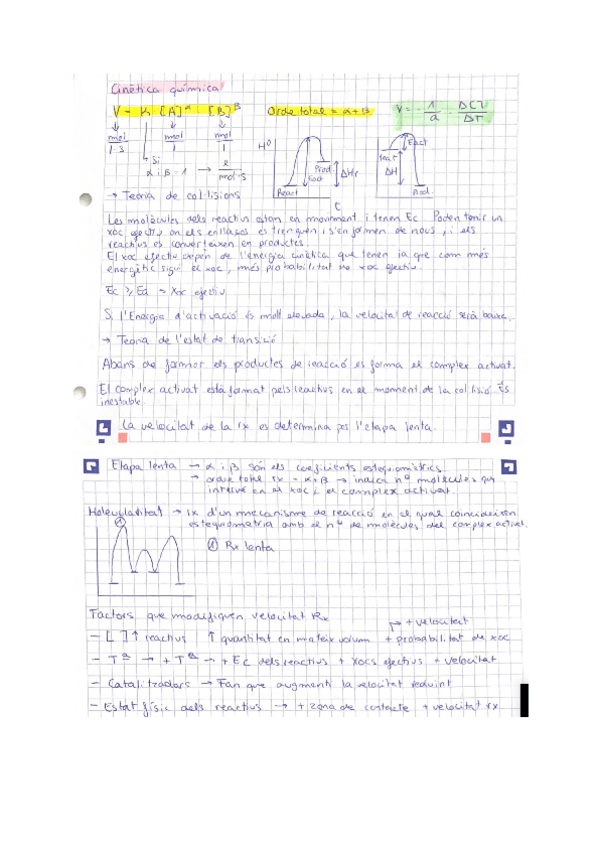 Cinètica química
V = K [A]^α · [B]^β   Orde total = α + β   V = - 1/a · Δ[ ]/Δt
mol/l·s   mol/l   mol/l   H⁰   Eact
Si α i β = 1 → l/mol·s   Prod.   Eact   ΔHr   React   ΔH
React   Prod.
→ Teoria de col·lisions   t
Les molècules dels reactius estan en moviment i tenen Ec. Poden tenir un
xoc efectiu on els enllaços es trenquen i s'en formen de nous, i els
reactius es converteixen en productes.
El xoc efectiu depèn de l'energia cinètica que tenen ja que com més
energètic sigui el xoc, més probabilitat de xoc efectiu.
Ec ≥ Ea = Xoc efectiu
Si l'Energia d'activació és molt elevada, la velocitat de reacció serà baixa.
→ Teoria de l'estat de transició
Abans de formar els productes de reacció es forma el complex activat.
El complex activat està format pels reactius en el moment de la col·lisió. És
inestable.
La velocitat de la rx es determina per l'etapa lenta.
Etapa lenta → α i β són els coeficients estequiomètrics
→ ordre total rx = α + β → indica nº molècules que
intervé en el xoc i el complex activat.
Molecularitat → rx d'un mecanisme de reacció en el qual coincideixen
estequiometria amb el nº de molècules del complex activat.
①
① Rx lenta
Factors que modifiquen velocitat Rx
→ + velocitat
- [ ] ↑ reactius   ↑ quantitat en mateix volum   + probabilitat de xoc
- Tª → + Tª → + Ec dels reactius + xocs efectius + velocitat
- Catalitzadors → Fan que augmenti la velocitat reduint
- Estat físic dels reactius → + zona de contacte + velocitat rx